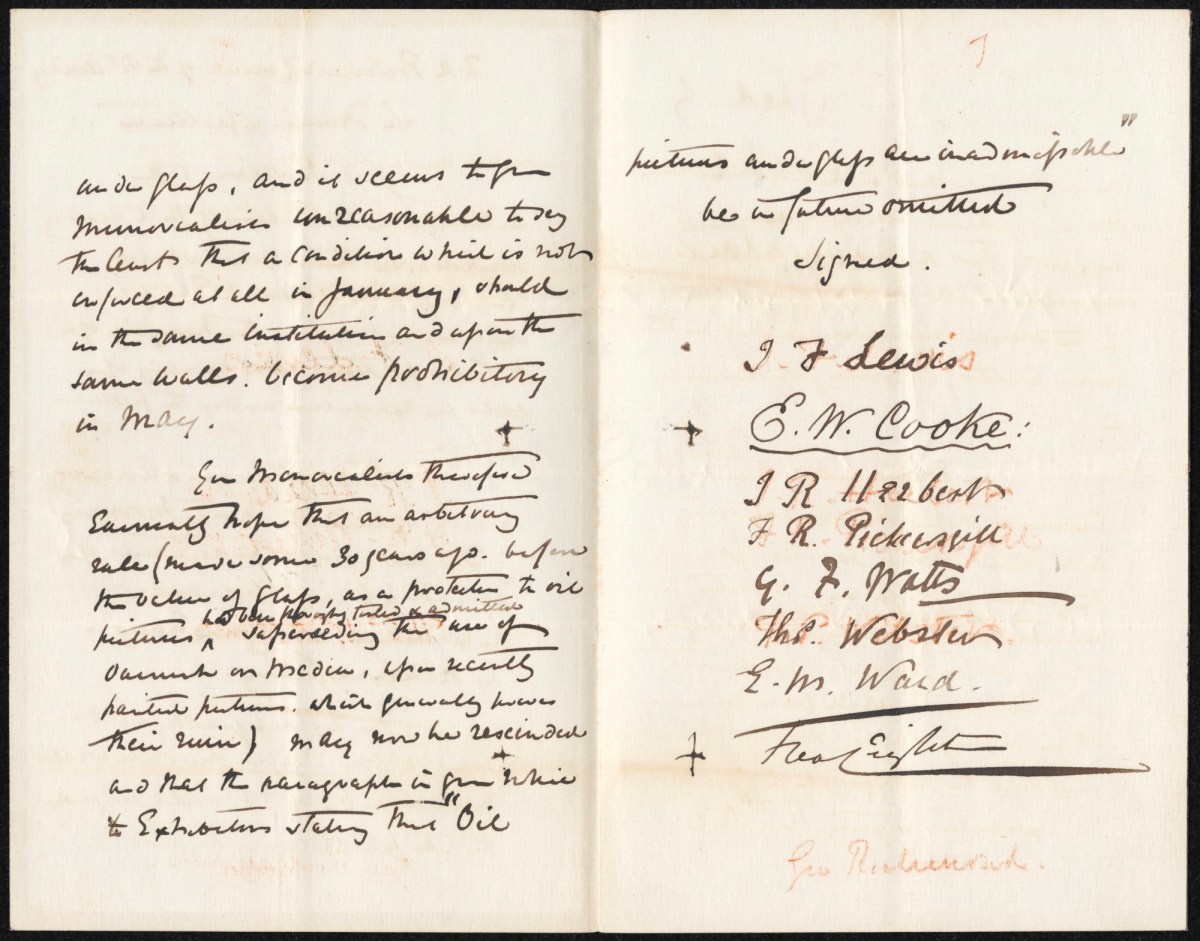 under glass, and it seems to your
Memorialists unreasonable to say
the least that a condition which is not
enforced at all in January, should
in the same institution and upon the
same walls. become prohibitory
in May.
Your Memorialists therefore
Earnestly hope that an arbitrary
rule (made some 30 years ago. before
the value of glass, as a protection to oil
had been thoroughly tested & admitted
pictures ^ superseding the use of
varnish or media, upon recently
painted pictures. which generally proves
their ruin) may now be rescinded
and that the paragraph in your Notice
to Exhibitors stating that "Oil
pictures under glass are inadmissable"
be in future omitted
signed.
J F Lewis
E. W. Cooke:
J R Herbert
F. R. Pickersgill
G. F. Watts
Thos. Webster
E. M. Ward.
Geo Richmond.